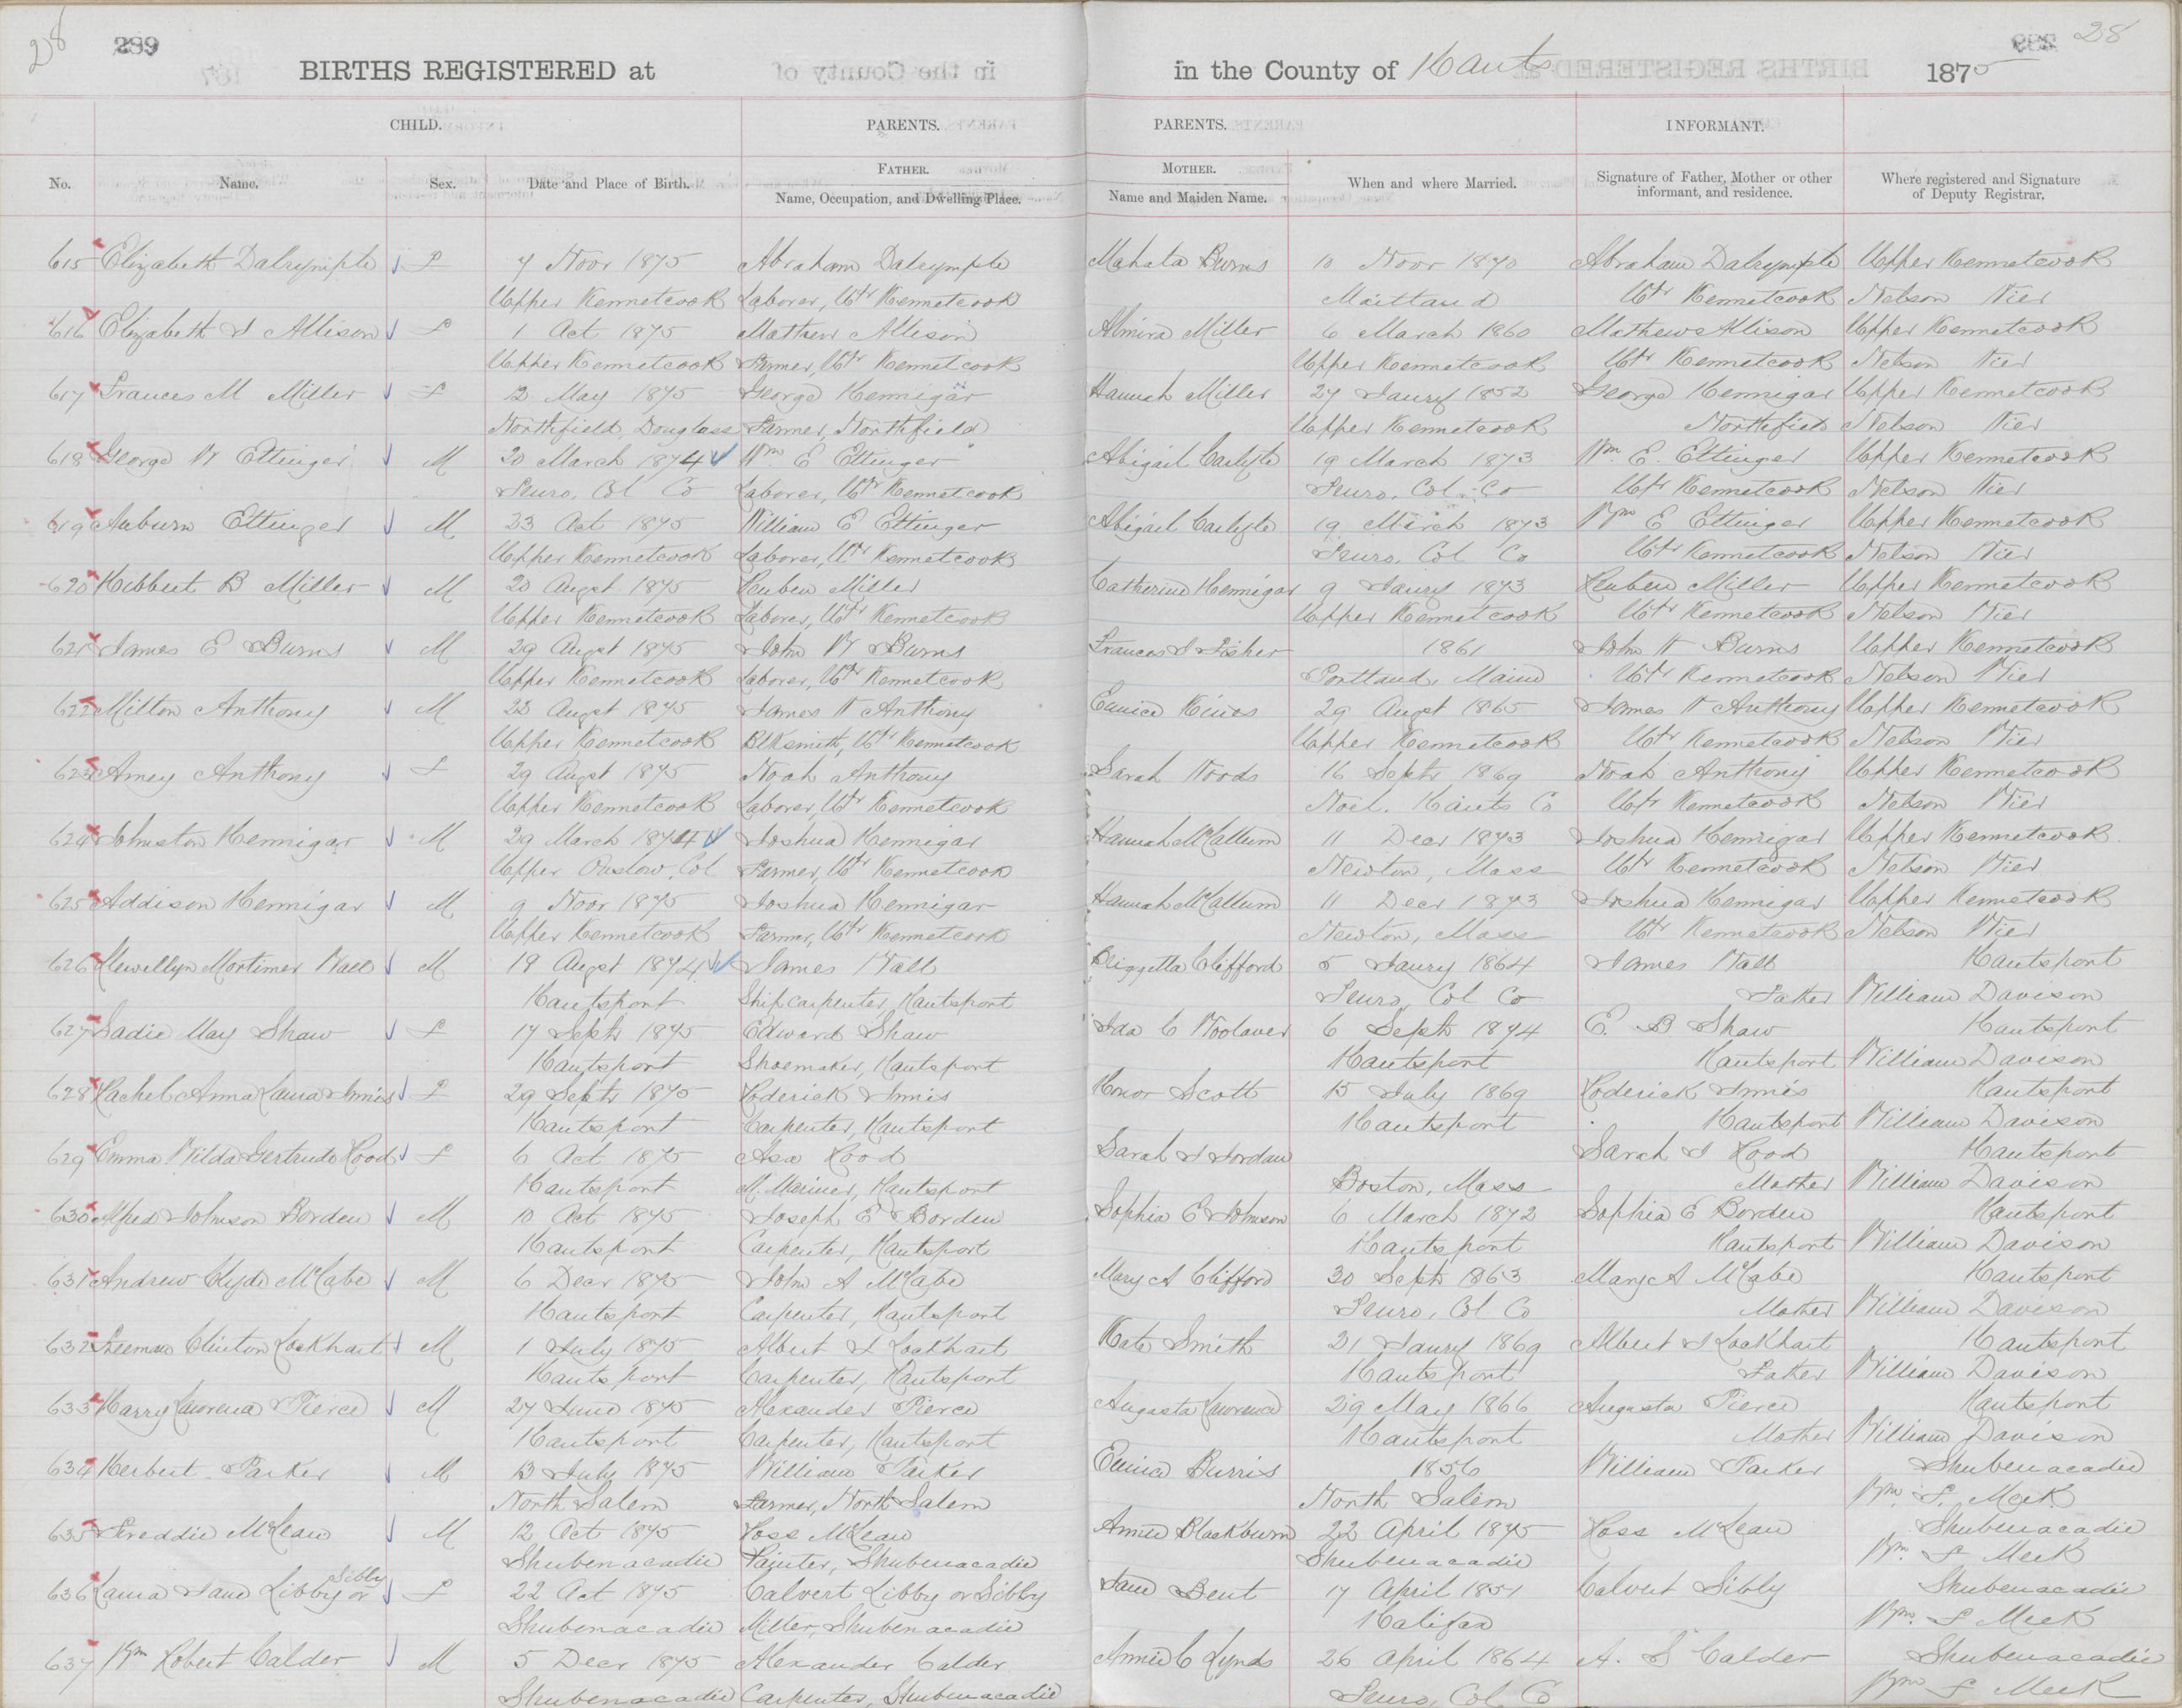 28 289 289 28
BIRTHS REGISTERED at in the County of Hants 1875
CHILD. PARENTS. PARENTS. INFORMANT.
No. Name. Sex. Date and Place of Birth. FATHER. Name, Occupation, and Dwelling Place. MOTHER. Name and Maiden Name. When and where Married. Signature of Father, Mother or other informant, and residence. Where registered and Signature of Deputy Registrar.
615 Elizabeth Dalrymple F 7 Novr 1875 Abraham Dalrymple Mahala Burns 10 Novr 1870 Abraham Dalrymple Upper Kennetcook
Upper Kennetcook Laborer, Upr Kennetcook Maitland Upr Kennetcook Nelson Wier
616 Elizabeth J Allison F 1 Oct 1875 Mathew Allison Almira Miller 6 March 1860 Mathew Allison Upper Kennetcook
Upper Kennetcook Farmer, Upr Kennetcook Upper Kennetcook Upr Kennetcook Nelson Wier
617 Frances M Miller F 12 May 1875 George Hennigar Hannah Miller 27 Jaury 1852 George Hennigar Upper Kennetcook
Northfield, Douglass Farmer, Northfield Upper Kennetcook Northfield Nelson Wier
618 George W Ettinger M 20 March 1874 Wm E Ettinger Abigail Carlyle 19 March 1873 Wm E. Ettinger Upper Kennetcook
Truro, Col Co Laborer, Upr Kennetcook Truro, Col. Co Upr Kennetcook Nelson Wier
619 Auburn Ettinger M 23 Oct 1875 William E Ettinger Abigail Carlyle 19 March 1873 Wm E Ettinger Upper Kennetcook
Upper Kennetcook Laborer, Upr Kennetcook Truro, Col Co Upr Kennetcook Nelson Wier
620 Hibbert B Miller M 20 Augst 1875 Reuben Miller Catherine Hennigar 9 Jaury 1873 Reuben Miller Upper Kennetcook
Upper Kennetcook Laborer, Upr Kennetcook Upper Kennetcook Upr Kennetcook Nelson Wier
621 James E Burns M 29 Augst 1875 John W Burns Frances J Fisher 1861 John W Burns Upper Kennetcook
Upper Kennetcook Laborer, Upr Kennetcook Portland, Maine Upr Kennetcook Nelson Wier
622 Milton Anthony M 22 Augst 1875 James W Anthony Eunice 29 Augst 1865 James W Anthony Upper Kennetcook
Upper Kennetcook Blksmith, Upr Kennetcook Upper Kennetcook Upr Kennetcook Nelson Wier
623 Amey Anthony F 29 Augst 1875 Noah Anthony Sarah Woods 16 Septr 1869 Noah Anthony Upper Kennetcook
Upper Kennetcook Laborer, Upr Kennetcook Noel. Hants Co Upr Kennetcook Nelson Wier
624 Johnston Hennigar M 29 March 1874 Joshua Hennigar Hannah McCallum 11 Decr 1873 Joshua Hennigar Upper Kennetcook
Upper Onslow, Col Farmer, Upr Kennetcook Newton, Mass Upr Kennetcook Nelson Wier
625 Addison Hennigar M 9 Novr 1875 Joshua Hennigar Hannah McCallum 11 Decr 1873 Joshua Hennigar Upper Kennetcook
Upper Kennetcook Farmer, Upr Kennetcook Newton, Mass Upr Kennetcook Nelson Wier
626 Llewellyn Mortimer Wall M 19 Augst 1874 James Wall Briggetta Clifford 5 Jaury 1864 James Wall Hantsport
Hantsport Ship carpenter, Hantsport Truro, Col Co Father William Davison
627 Sadie May Shaw F 17 Septr 1875 Edward Shaw Ida C Woolaver 6 Septr 1874 E. B Shaw Hantsport
Hantsport Shoemaker, Hantsport Hantsport Hantsport William Davison
628 Rachel Anna Laura Innis F 29 Septr 1875 Roderick Innis Honor Scott 15 July 1869 Roderick Innis Hantsport
Hantsport Carpenter, Hantsport Hantsport Hantsport William Davison
629 Emma Wilda Gertrude Hood F 6 Oct 1875 Asa Hood Sarah J Jordan Sarah J Hood Hantsport
Hantsport M. Mariner, Hantsport Boston, Mass Mother William Davison
630 Alfred Johnson Borden M 10 Oct 1875 Joseph E Borden Sophia E Johnson 6 March 1872 Sophia E Borden Hantsport
Hantsport Carpenter, Hantsport Hantsport Hantsport William Davison
631 Andrew Clyde McCabe M 6 Decr 1875 John A McCabe Mary A Clifford 30 Septr 1863 Mary A McCabe Hantsport
Hantsport Carpenter, Hantsport Truro, Col Co Mother William Davison
632 Freeman Clinton Lockhart M 1 July 1875 Albert J Lockhart Kate Smith 21 Jaury 1869 Albert J Lockhart Hantsport
Hantsport Carpenter, Hantsport Hantsport Father William Davison
633 Harry Lawrence Pierce M 27 June 1875 Alexander Pierce Augusta Lawrence 29 May 1866 Augusta Pierce Hantsport
Hantsport Carpenter, Hantsport Hantsport Mother William Davison
634 Herbert Parker M 13 July 1875 William Parker Eunice Burris 1856 William Parker Shubenacadie
North Salem Farmer, North Salem North Salem Wm. F. Meek
635 Freddie McLean M 12 Oct 1875 Ross McLean Annie Blackburn 22 April 1875 Ross McLean Shubenacadie
Shubenacadie Painter, Shubenacadie Shubenacadie Wm. F Meek
636 Laura Jane Libby or Sibly F 22 Oct 1875 Calvert Libby or Sibby Jane Bent 17 April 1851 Calvert Sibly Shubenacadie
Shubenacadie Miller, Shubenacadie Halifax Wm. F Meek
637 Wm Robert Calder M 5 Decr 1875 Alexander Calder Annie C Lynds 26 April 1864 A. S Calder Shubenacadie
Shubenacadie Carpenter, Shubenacadie Truro, Col. Co Wm F Meek